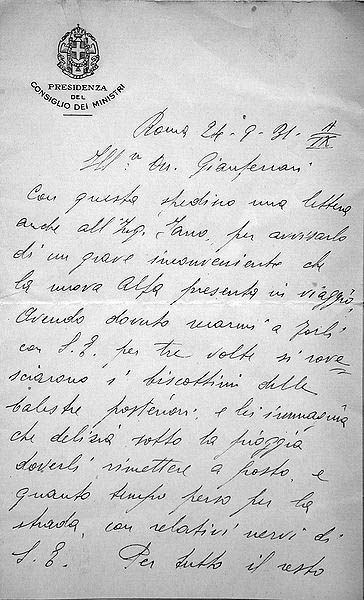 PRESIDENZA
DEL
CONSIGLIO DEI MINISTRI
Roma 24-9-31-
IX
Ill.º Dr. Gianferrari
Con questa spedirò una lettera
anche all'Ing. Jano, per avvisarlo
di un grave inconveniente che
la nuova Alfa presenta in viaggio.
Avendo dovuto recarmi a Forlì
con S. E. per tre volte si rove=
sciarono i biscottini delle
balestre posteriori, e lei immagina
che delizia sotto la pioggia
doverli rimettere a posto, e
quanto tempo perso per la
strada, con relativi nervi di
S. E. Per tutto il resto